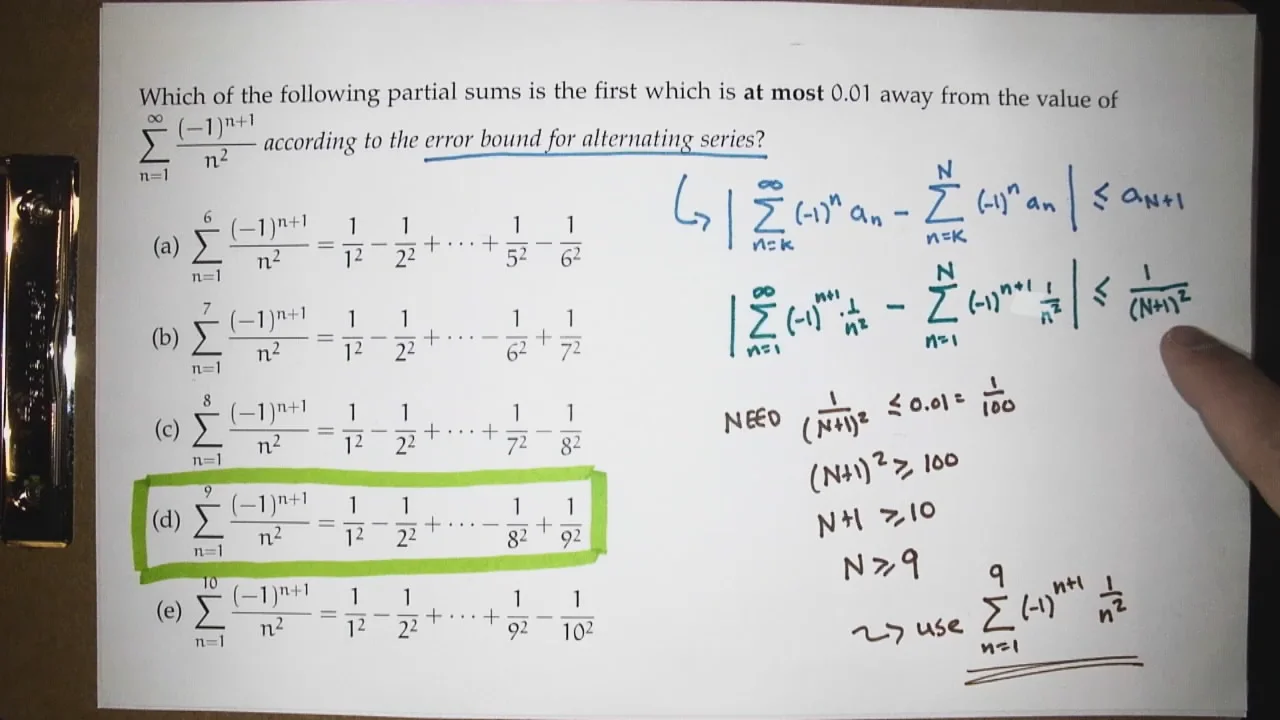 Which of the following partial sums is the first which is at most 0.01 away from the value of
∞ ∑ n=1 (−1)ⁿ⁺¹/n² according to the error bound for alternating series?
(a) 6 ∑ n=1 (−1)ⁿ⁺¹/n² = 1/1² − 1/2² + ⋯ + 1/5² − 1/6²
(b) 7 ∑ n=1 (−1)ⁿ⁺¹/n² = 1/1² − 1/2² + ⋯ − 1/6² + 1/7²
(c) 8 ∑ n=1 (−1)ⁿ⁺¹/n² = 1/1² − 1/2² + ⋯ + 1/7² − 1/8²
(d) 9 ∑ n=1 (−1)ⁿ⁺¹/n² = 1/1² − 1/2² + ⋯ − 1/8² + 1/9²
(e) 10 ∑ n=1 (−1)ⁿ⁺¹/n² = 1/1² − 1/2² + ⋯ + 1/9² − 1/10²
↳ | ∞ ∑ n=K (-1)ⁿ aₙ − N ∑ n=K (-1)ⁿ aₙ | ≤ a_N+1
| ∞ ∑ n=1 (-1)ⁿ⁺¹ · 1/n² − N ∑ n=1 (-1)ⁿ⁺¹ 1/n² | ≤ 1/(N+1)²
NEED 1/(N+1)² ≤ 0.01 = 1/100
(N+1)² ≥ 100
N+1 ≥ 10
N ≥ 9
⇝ use 9 ∑ n=1 (-1)ⁿ⁺¹ 1/n²